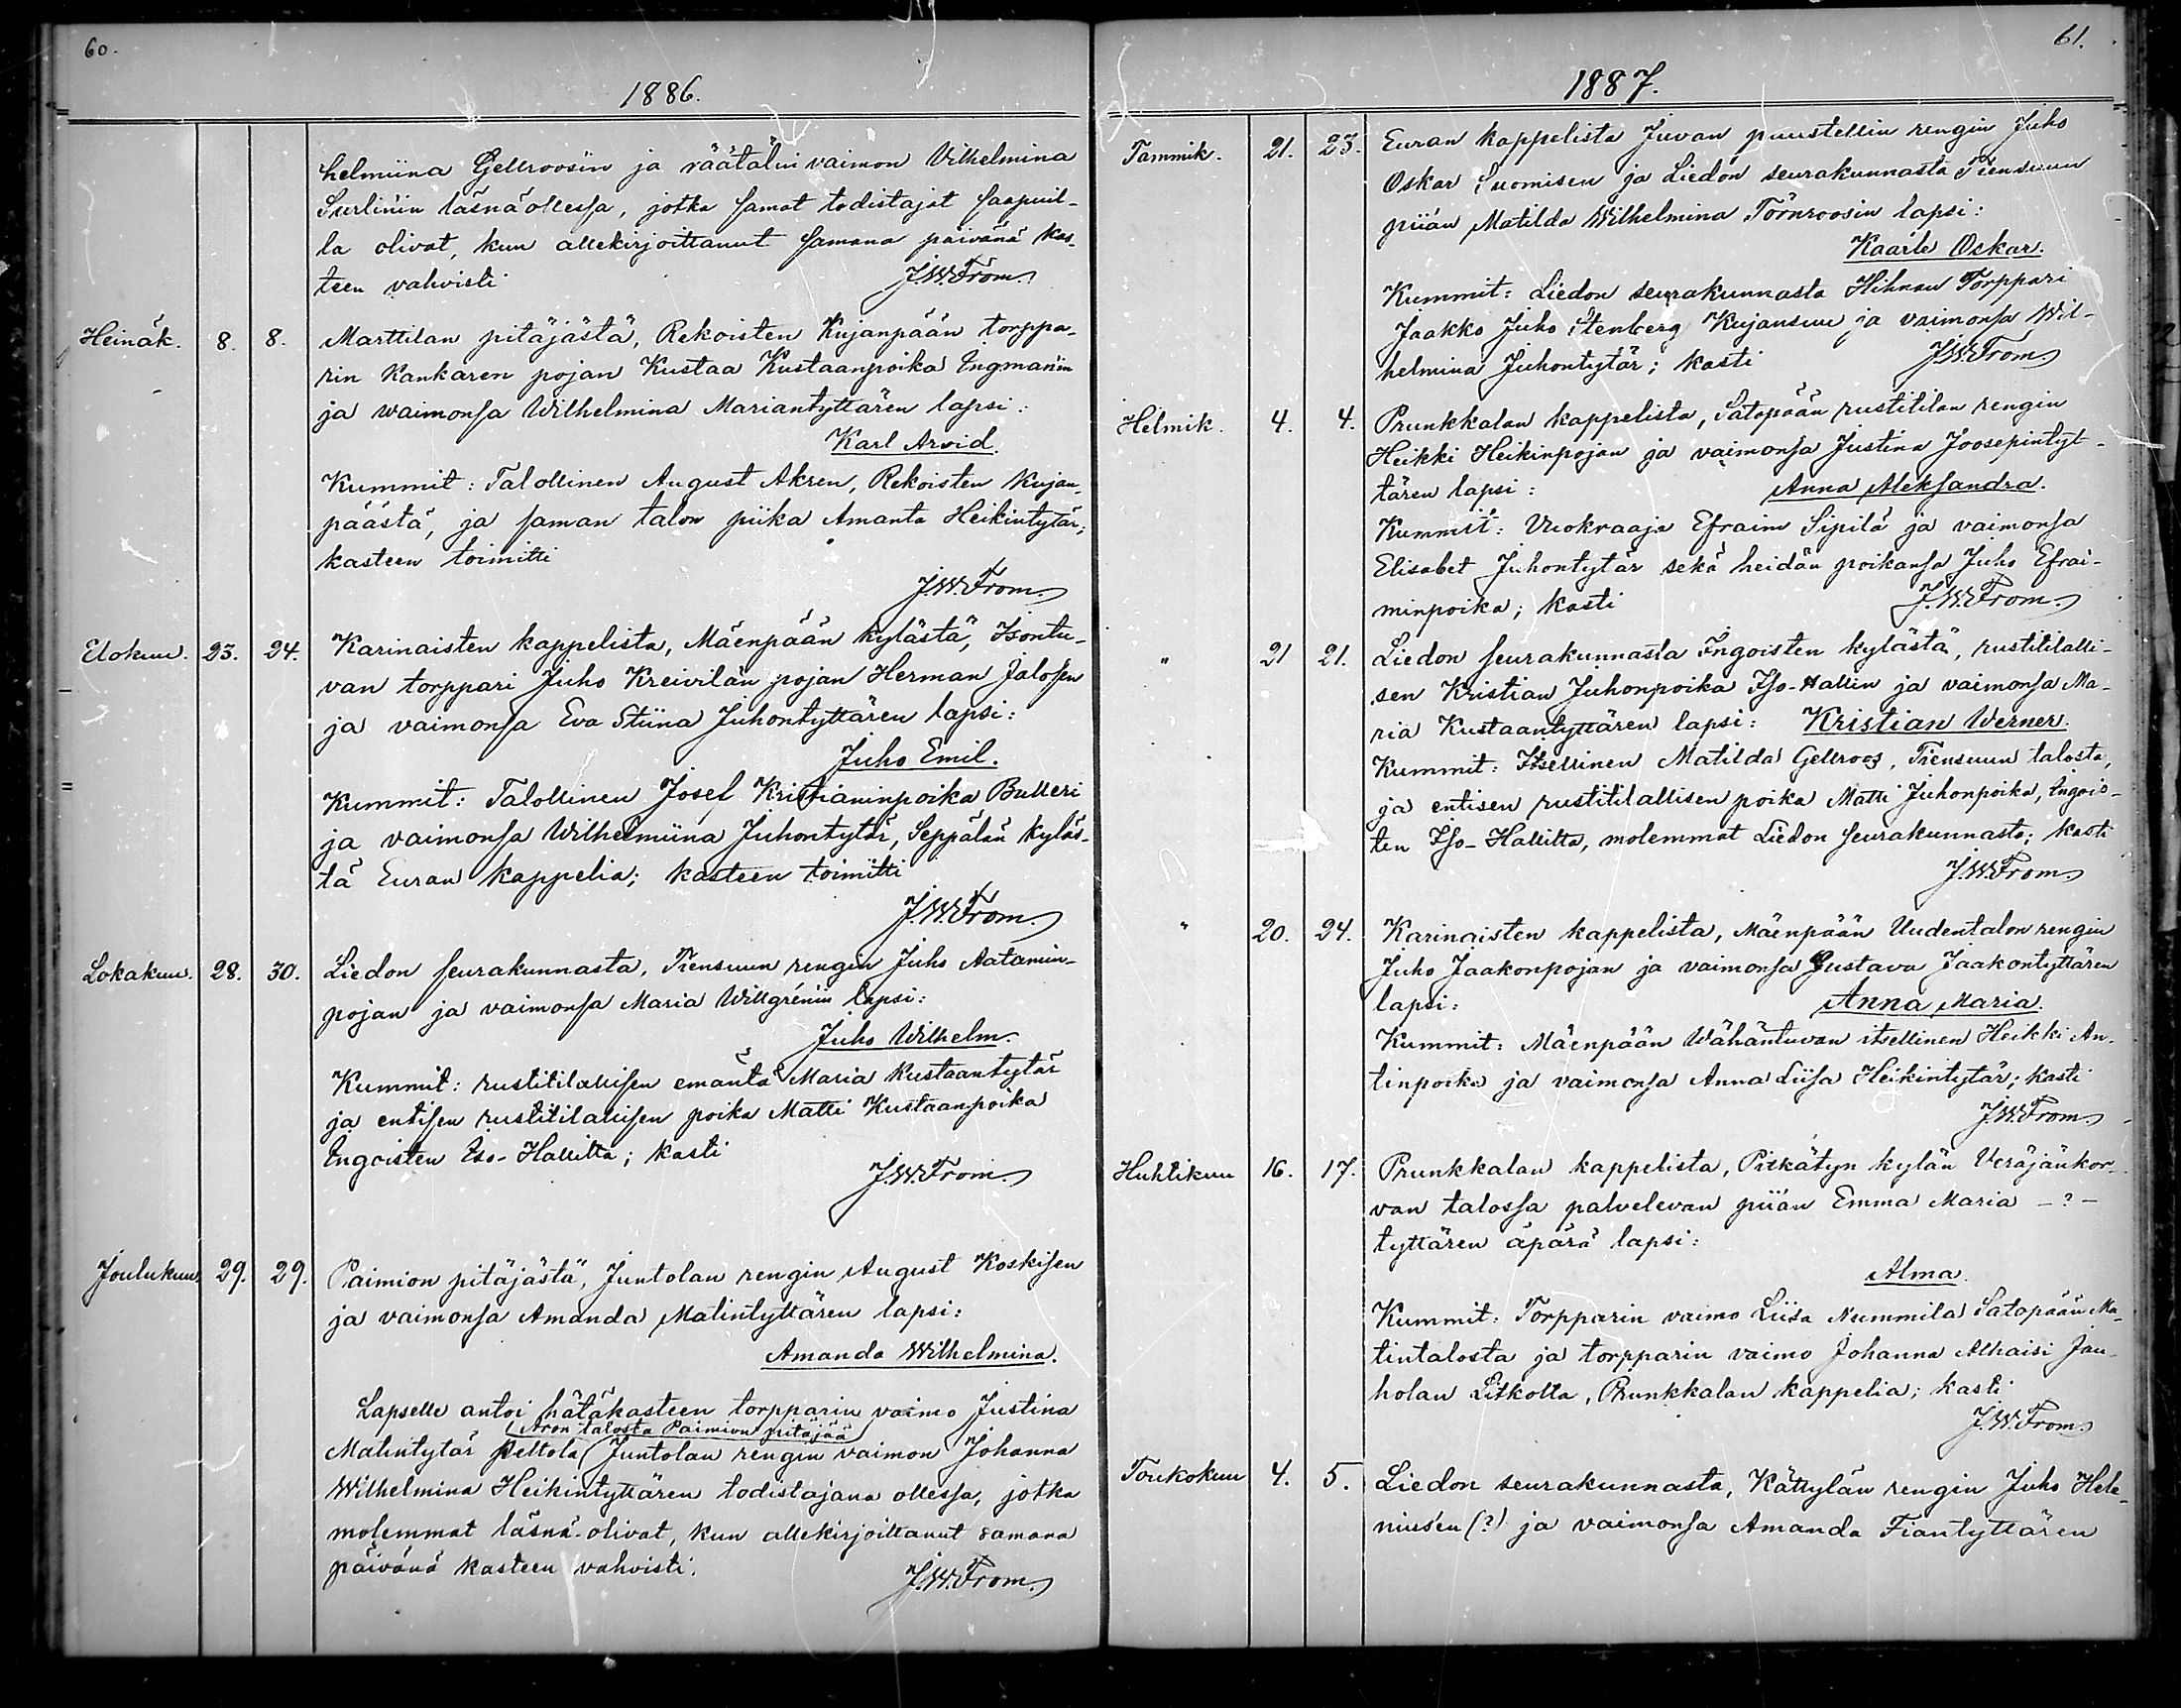 60.
1886.
helmiina Gellroosin ja räätälin vaimon Vilhelmina
Surlinin läsnäollessa, jotka samat todistajat saapuil-
la olivat, kun allekirjoittanut samana päivänä kas-
teen vahvisti J.W.From.
Heinäk. 8. 8. Marttilan pitäjästä, Rekoisten Kujanpään torppa-
rin Kankaren pojan Kustaa Kustaanpoika Engmanin
ja waimonsa Wilhelmina Mariantyttären lapsi:
Karl Arvid.
Kummit: Talollinen August Akren, Rekoisten Kujan-
päästä, ja saman talon piika Amanta Heikintytär;
kasteen toimitti
J.W.From.
Elokuu. 23. 24. Karinaisten kappelista, Mäenpään kylästä, Isontu-
van torppari Juho Kreivilän pojan Herman Jalosen
ja vaimonsa Eva Stiina Juhontyttären lapsi:
Juho Emil.
Kummit: Talollinen Josef Kristianinpoika Bulleri
ja vaimonsa Wilhelmiina Juhontytär, Seppälän kyläs-
tä Euran kappelia; kasteen toimitti
J.W.From.
Lokakuu. 28. 30. Liedon seurakunnasta, Tiensuun rengin Juho Aatamin-
pojan ja vaimonsa Maria Willgrénin lapsi:
Juho Wilhelm.
Kummit: rustitilallisen emäntä Maria Kustaantytär
ja entisen rustitilallisen poika Matti Kustaanpoika
Engoisten Iso-Hallilta; kasti
J.W.From.
Joulukuu 29. 29. Paimion pitäjästä, Juntolan rengin August Koskisen
ja vaimonsa Amanda Matintyttären lapsi:
Amanda Wilhelmina.
Lapselle antoi hätäkasteen torpparin vaimo Justina
(Aron talosta Paimion pitäjää)
Matintytär Peltola (Juntolan rengin vaimon Johanna
Wilhelmina Heikintyttären todistajana ollessa, jotka
molemmat läsnä-olivat, kun allekirjoittanut samana
päivänä kasteen vahvisti. J.W.From.
61.
1887.
Tammik. 21. 23. Euran kappelista Juvan puustellin rengin Juho
Oskar Suomisen ja Liedon seurakunnasta Tiensuun
piian Matilda Wilhelmina Törnroosin lapsi:
Kaarle Oskar.
Kummit: Liedon seurakunnasta Hihnan Torppari
Jaakko Juho Stenberg Kujansuu ja vaimonsa Wil-
helmina Juhontytär; kasti J.W.From.
Helmik. 4. 4. Prunkkalan kappelista, Satopään rustitilan rengin
Heikki Heikinpojan ja vaimonsa Justina Joosepintyt-
tären lapsi: Anna Aleksandra.
Kummit: Vuokraaja Efraim Sipilä ja vaimonsa
Elisabet Juhontytär sekä heidän poikansa Juho Efrai-
minpoika; kasti J.W.From.
" 21 21. Liedon seurakunnasta Ingoisten kylästä, rustitilalli-
sen Kristian Juhonpoika Iso-Hallin ja vaimonsa Ma-
ria Kustaantyttären lapsi: Kristian Werner.
Kummit: Itsellinen Matilda Gellroos, Tiensuun talosta,
ja entisen rustitilallisen poika Matti Juhonpoika, Engois-
ten Iso-Hallilta, molemmat Liedon seurakunnasta; kasti
J.W.From.
" 20. 24. Karinaisten kappelista, Mäenpään Uudentalon rengin
Juho Jaakonpojan ja vaimonsa Gustava Jaakontyttären
lapsi: Anna Maria.
Kummit: Mäenpään Wähäntuvan itsellinen Heikki An-
tinpoika ja vaimonsa Anna Liisa Heikintytär; kasti
J.W.From.
Huhtikuu 16. 17. Prunkkalan kappelista, Pitkätyn kylän Veräjänkor-
van talossa palvelevan piian Emma Maria -?-
tyttären äpärä lapsi:
Alma.
Kummit: Torpparin vaimo Liisa Nummila Satopään Ma-
tintalosta ja torpparin vaimo Johanna Alhaisi Jau-
holan Litkolta, Prunkkalan kappelia; kasti
J.W.From.
Toukokuu 4. 5. Liedon seurakunnasta, Kättylän rengin Juho Hele-
niusen (?) ja vaimonsa Amanda Fiantyttären